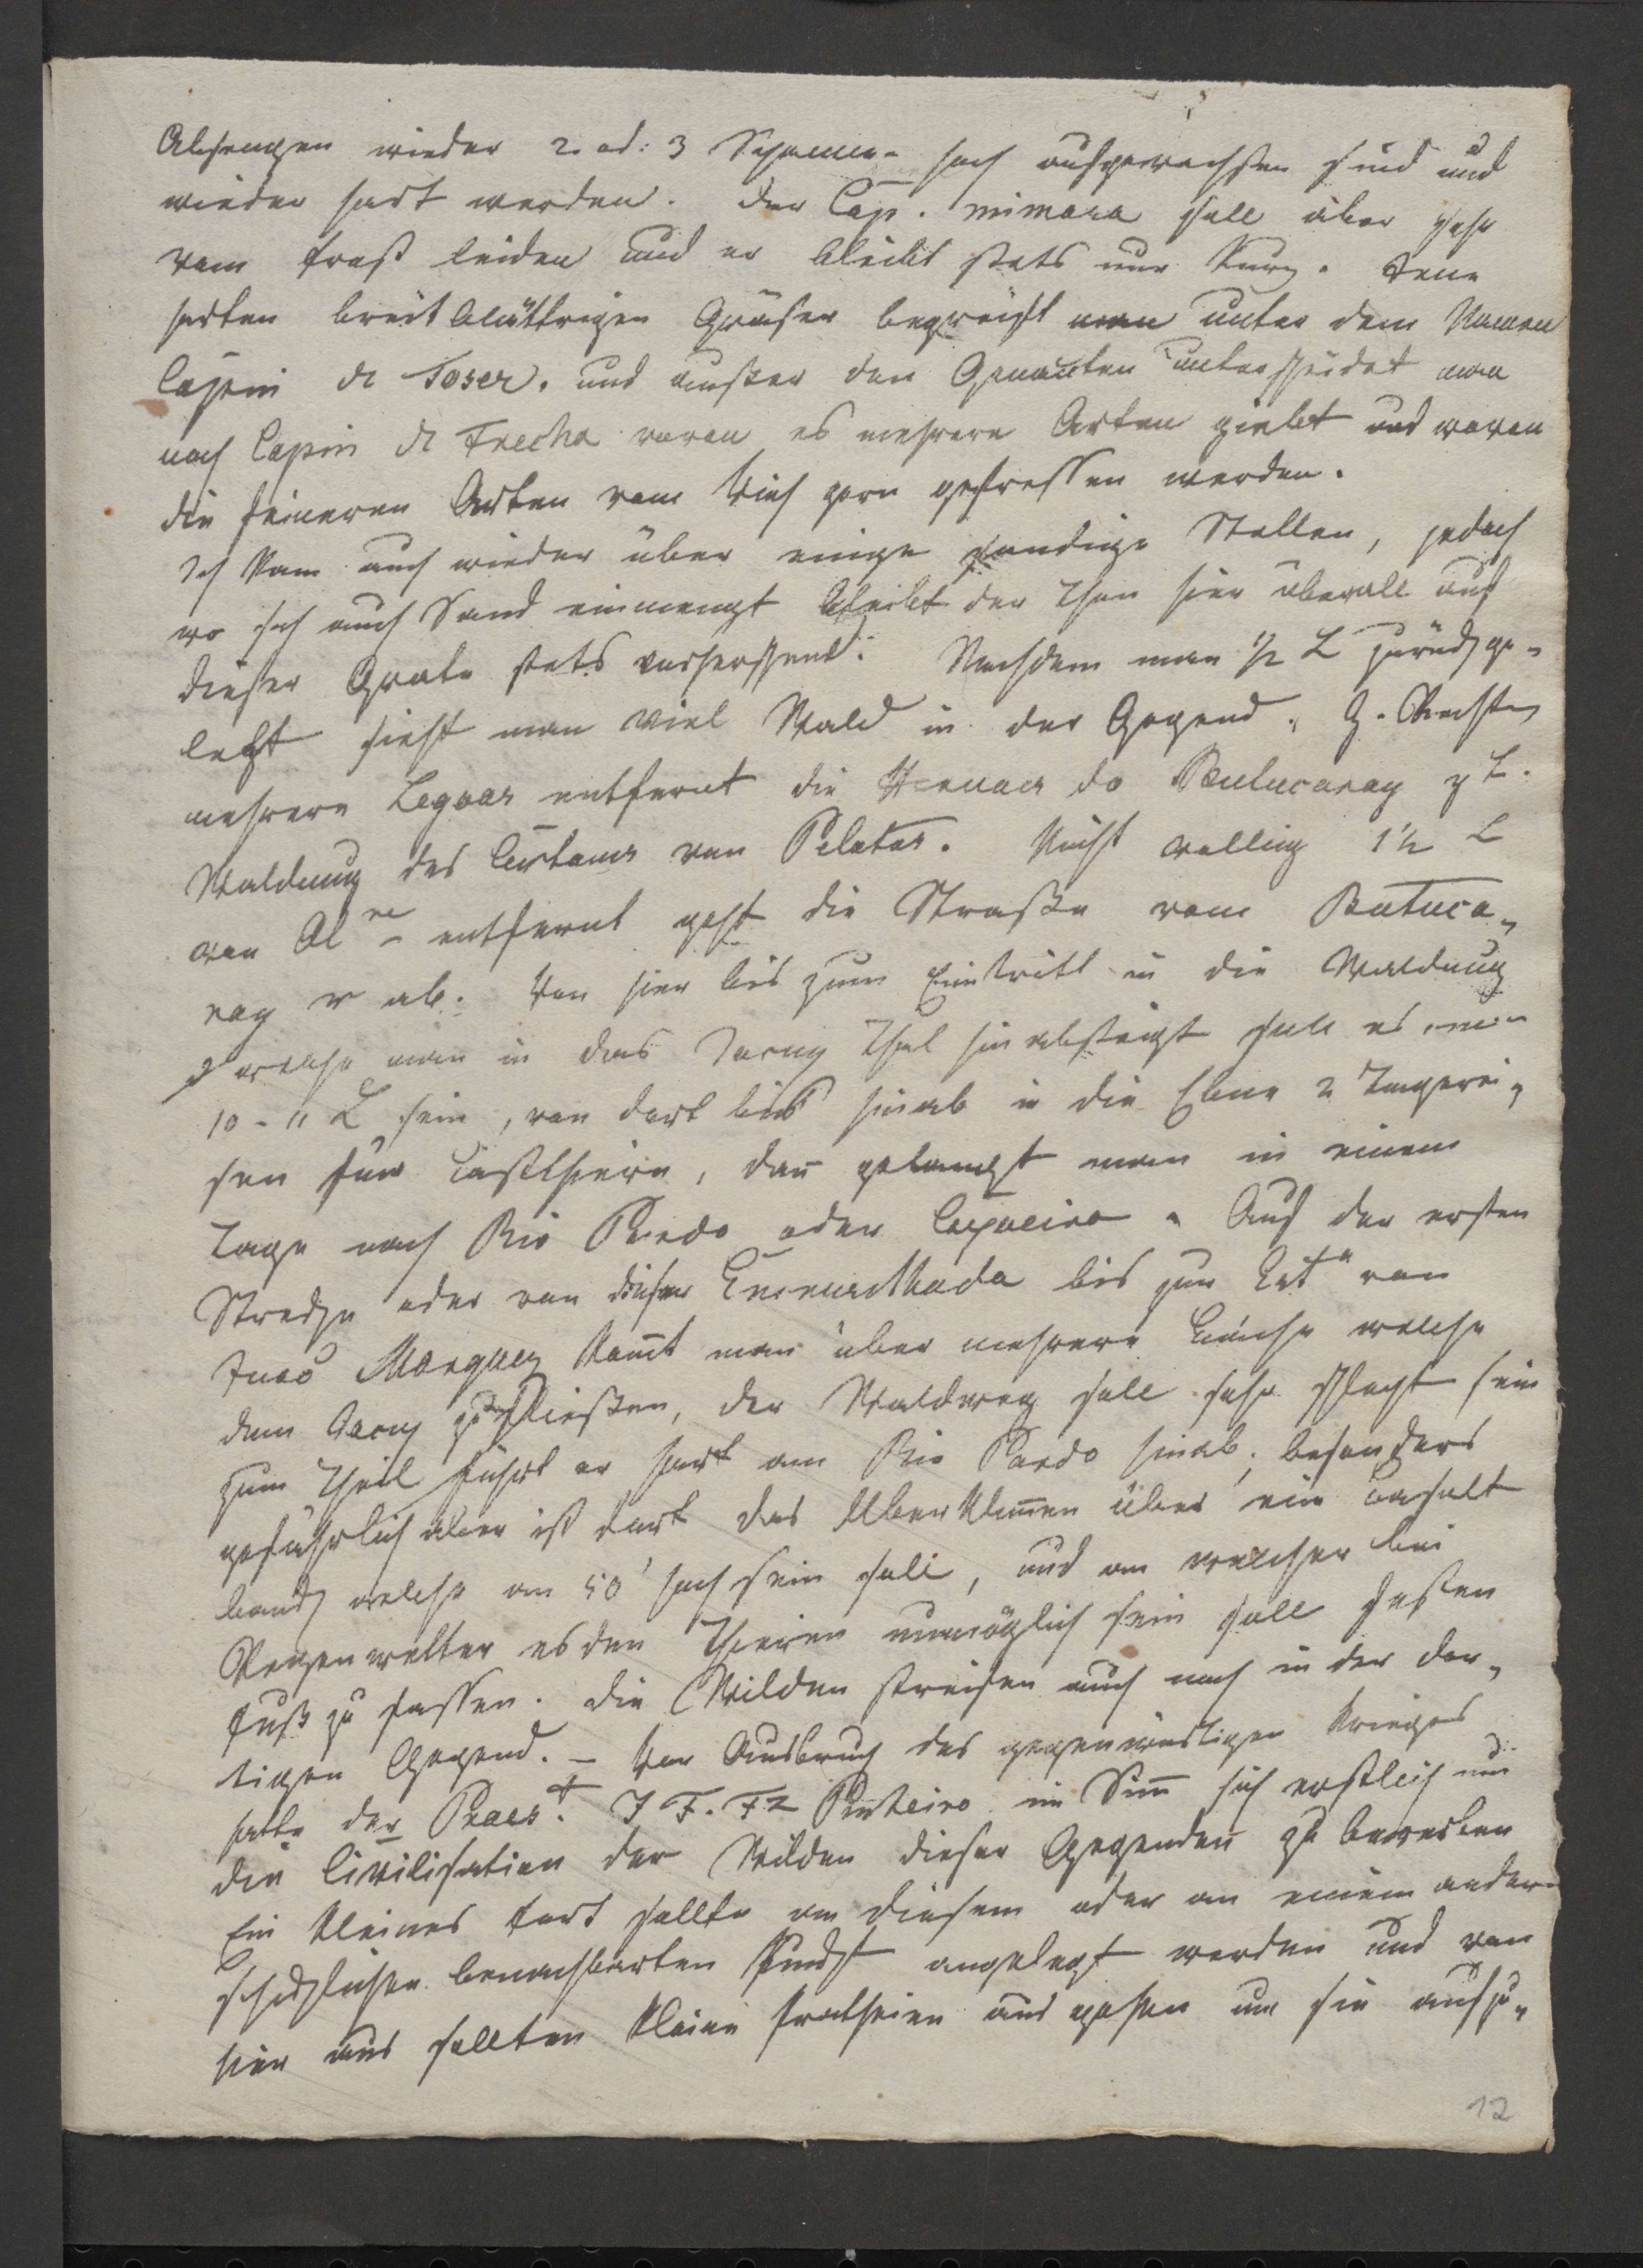 Absengen wieder 2 od: 3 Spannen hoch aufgewachsen sind und
wieder hart werden. Der Cap. mimosa soll aber sehr
vom Frost leiden und er bleibt stets nur kurz. Jene
harten breitblättrigen Gräser begreift man unter dem Namen
Capin de und außer den Genañten unterscheidet man
noch Capin de Frecha wovon es mehrere Arten giebt und wovon
die feineren Arten vom Vieh gern gefressen werden.
Ich kam auch wieder über einige sandige Stellen, jedoch
wo sich auch Sand einmengt bleibt der Thon hier überall auf
dieser Grate stets vorherschend. Nachdem man ½ L zurückge-
legt sieht man viel Wald in der Gegend. Z. Rechten
mehrere Legoas entfernt die do Butucaray z L.
Waldung des Certams von Pelotas. Nicht völlig 1½ L
von Al entfernt geht die Straße vom Butuca-
ray r ab. Von hier bis zum Eintritt in die Waldung
welche man in das Jacuy Thal hinabsteigt soll es
10-11 L sein, von dort bis hinab in die Ebne 2 Tagerei-
sen für Lastthiere, dañ gelangt man in einem
Tage nach Rio Pardo oder Capueira. Auf der ersten
Strecke oder von dieser Encruzilhada bis zum von
Joaõ Marquez kom̄t man über mehrere Bäche welche
dem Jacuy zufließen, der Waldweg soll sehr schlecht sein
zum Theil führt er hart am Rio Pardo hinab; besonders
gefährlich aber ist dort das Uberklim̄en über ein Basalt
bank welche an 50' hoch sein soll, und an welcher bei
Regenwetter es den Thieren unmöglich sein soll festen
Fuß zu fassen. Die Wilden streifen auch noch in der dor-
tigen Gegend. – Vor Ausbruch des gegenwärtigen Krieges
hatte der Praest. J F. Fz Pinheiro im Siñ sich ernstlich um
die Civilisation der Wilden dieser Gegenden zu bewerben
Ein kleines Fort sollte an diesem oder an einem andern
schicklichen benachbarten Punckt angelegt werden und von
hier aus sollten kleine Partheien aus gehen um sie aufzu-
12